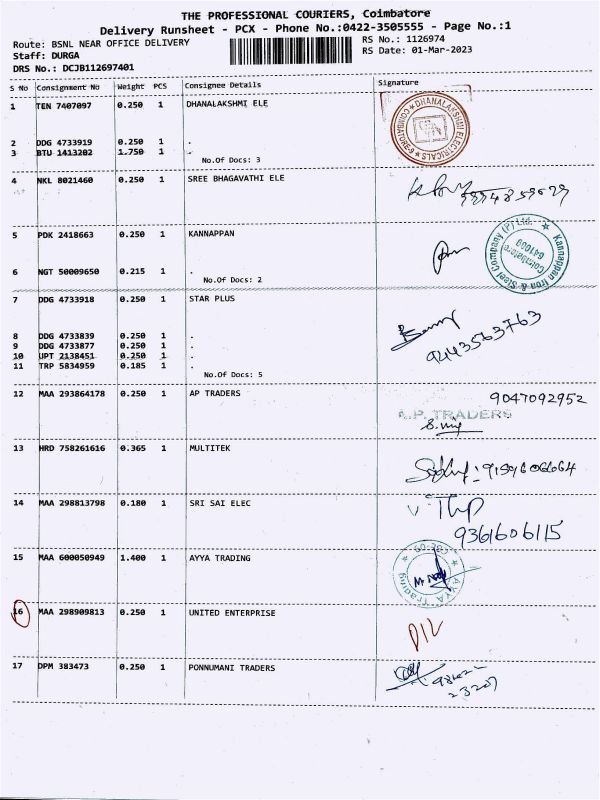 THE PROFESSIONAL COURIERS, Coimbatore
Delivery Runsheet - PCX - Phone No.:0422-3505555 - Page No.:1
Route: BSNL NEAR OFFICE DELIVERY
RS No.: 1126974
Staff: DURGA
RS Date: 01-Mar-2023
DRS No.: DCJB112697401
S No Consignment No Weight PCS Consignee Details Signature
1 TEN 7407097 0.250 1 DHANALAKSHMI ELE
DHANALAKSHMI ELECTRICALS
2 DDG 4733919 0.250 1 .
3 BTU 1413202 1.750 1 .
No.Of Docs: 3
4 NKL 8021460 0.250 1 SREE BHAGAVATHI ELE
5 PDK 2418663 0.250 1 KANNAPPAN
Kannappan Iron & Steel Company (P) Ltd.
Coimbatore
641009
6 NGT 50009650 0.215 1 .
No.Of Docs: 2
7 DDG 4733918 0.250 1 STAR PLUS
8 DDG 4733839 0.250 1 .
9 DDG 4733877 0.250 1 .
10 UPT 2138451 0.250 1 .
11 TRP 5834959 0.185 1 .
No.Of Docs: 5
9443563763
12 MAA 293864178 0.250 1 AP TRADERS
9047092952
A.P. TRADERS
13 HRD 758261616 0.365 1 MULTITEK
14 MAA 298813798 0.180 1 SRI SAI ELEC
9361606115
15 MAA 600050949 1.400 1 AYYA TRADING
AYYA Trading
16 MAA 298909813 0.250 1 UNITED ENTERPRISE
D/L
17 DPM 383473 0.250 1 PONNUMANI TRADERS